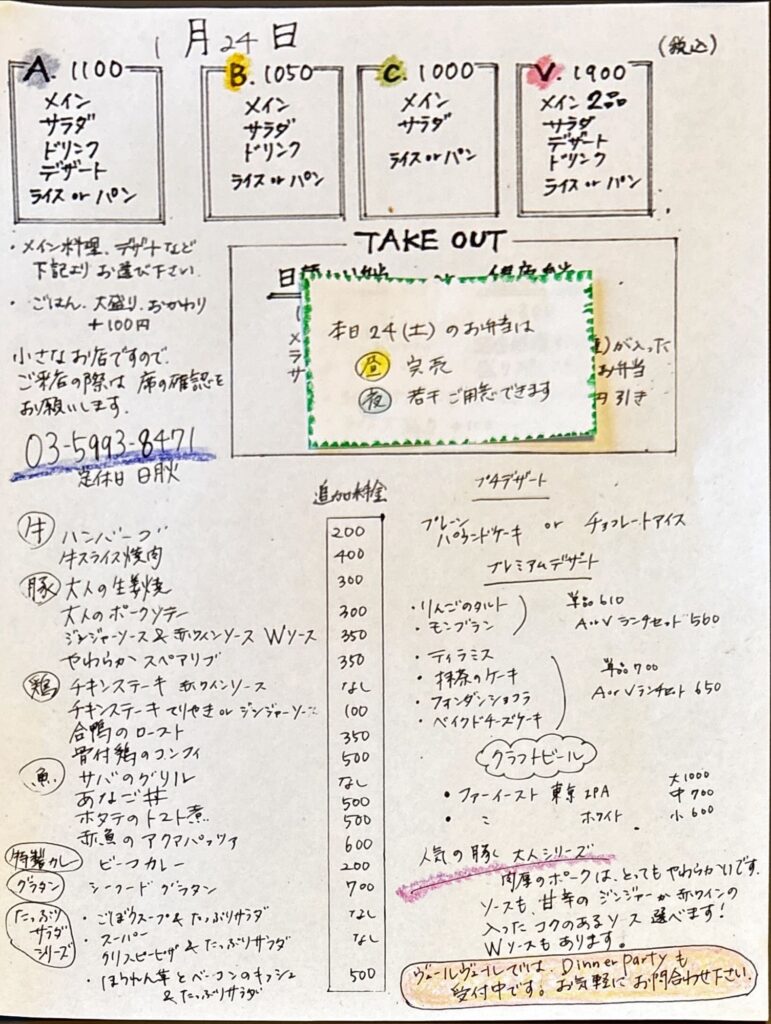 1月24日
(税込)
A. 1100
メイン
サラダ
ドリンク
デザート
ライス or パン
B. 1050
メイン
サラダ
ドリンク
ライス or パン
C. 1000
メイン
サラダ
ライス or パン
V. 1900
メイン 2品
サラダ
デザート
ドリンク
ライス or パン
・メイン料理、デザートなど
下記より お選び下さい
・ごはん、大盛り、おかわり
+100円
小さなお店ですので、
ご来店の際は 席の確認を
お願いします.
03-5993-8471
定休日 日月火
TAKE OUT
本日 24(土) のお弁当は
昼 完売
夜 若干 ご用意できます
が入った
お弁当
円引き
追加料金
牛 ハンバーグ 200
牛スライス焼肉 400
豚 大人の生姜焼 300
大人のポークソテー 300
ジンジャーソース & 赤ワインソース Wソース 350
やわらか スペアリブ 350
鶏 チキンステーキ 赤ワインソース なし
チキンステーキ てりやき or ジンジャーソース 100
合鴨の ロースト 350
骨付鶏のコンフィ 500
魚 サバのグリル なし
あなご丼 500
ホタテのトマト煮 500
赤魚の アクアパッツァ 600
特製カレー ビーフカレー 200
グラタン シーフード グラタン 700
たっぷり
サラダ
シリーズ
・ごぼうスープ & たっぷりサラダ なし
・スーパー
クリスピーピザ & たっぷりサラダ なし
・ほうれん草とベーコンのキッシュ 500
& たっぷりサラダ
プチデザート
プレーン
パウンドケーキ or チョコレートアイス
プレミアムデザート
・りんごのタルト
・モンブラン
単品 610
A or V ランチセット 560
・ティラミス
・抹茶のケーキ
・フォンダンショコラ
・ベイクドチーズケーキ
単品 700
A or V ランチセット 650
クラフトビール
・ファーイースト 東京 IPA
・ 〃 ホワイト
大 1000
中 700
小 600
人気の豚、大人シリーズ
肉厚のポークは、とってもやわらかいです.
ソースも、甘辛の ジンジャーか赤ワインの
入った コクのあるソース 選べます!
Wソースもあります。
ヴェールヴェールでは、Dinner partyも
受付中です。お気軽に お問合わせ下さい.